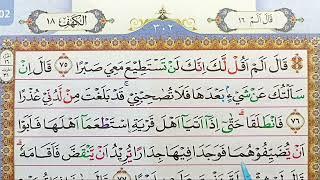 قَالَ اَلَمْ ١٦
٣٠٢
اَلْكَهْف ١٨
02
قَالَ اَلَمْ اَقُلْ لَّكَ اِنَّكَ لَنْ تَسْتَطِيْعَ مَعِيَ صَبْرًا ٧٥ قَالَ اِنْ
سَاَلْتُكَ عَنْ شَيْءٍۢ بَعْدَهَا فَلَا تُصٰحِبْنِيْۚ قَدْ بَلَغْتَ مِنْ لَّدُنِّيْ عُذْرًا ٧٦
فَانْطَلَقَاۗ حَتّٰٓى اِذَآ اَتَيَآ اَهْلَ قَرْيَةِ اِۨسْتَطْعَمَآ اَهْلَهَا فَاَبَوْا
اَنْ يُّضَيِّفُوْهُمَا فَوَجَدَا فِيْهَا جِدَارًا يُّرِيْدُ اَنْ يَّنْقَضَّ فَاَقَامَهٗۗ